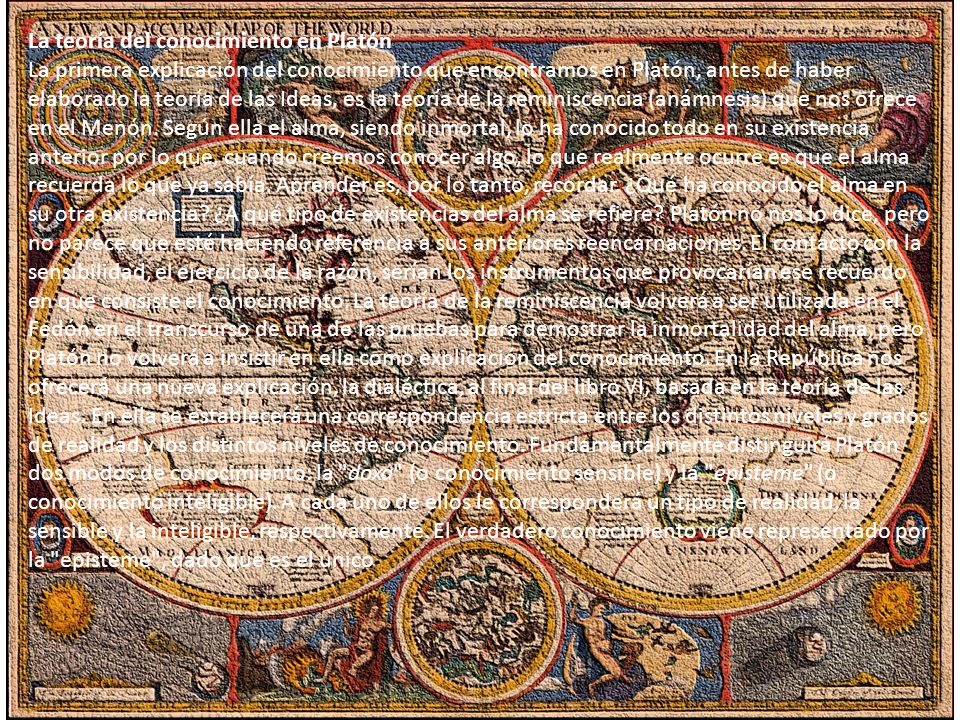 A NEW AND ACCVRAT MAP OF THE WORLD
La teoría del conocimiento en Platón
La primera explicación del conocimiento que encontramos en Platón, antes de haber
elaborado la teoría de las Ideas, es la teoría de la reminiscencia (anámnesis) que nos ofrece
en el Menón. Según ella el alma, siendo inmortal, lo ha conocido todo en su existencia
anterior por lo que, cuando creemos conocer algo, lo que realmente ocurre es que el alma
recuerda lo que ya sabía. Aprender es, por lo tanto, recordar. ¿Qué ha conocido el alma en
su otra existencia? ¿A qué tipo de existencias del alma se refiere? Platón no nos lo dice, pero
no parece que esté haciendo referencia a sus anteriores reencarnaciones. El contacto con la
sensibilidad, el ejercicio de la razón, serían los instrumentos que provocarían ese recuerdo
en que consiste el conocimiento. La teoría de la reminiscencia volverá a ser utilizada en el
Fedón en el transcurso de una de las pruebas para demostrar la inmortalidad del alma, pero
Platón no volverá a insistir en ella como explicación del conocimiento. En la República nos
ofrecerá una nueva explicación, la dialéctica, al final del libro VI, basada en la teoría de las
Ideas. En ella se establecerá una correspondencia estricta entre los distintos niveles y grados
de realidad y los distintos niveles de conocimiento. Fundamentalmente distinguirá Platón
dos modos de conocimiento: la "doxa" (o conocimiento sensible) y la "episteme" (o
conocimiento inteligible). A cada uno de ellos le corresponderá un tipo de realidad, la
sensible y la inteligible, respectivamente. El verdadero conocimiento viene representado por
la "episteme", dado que es el único